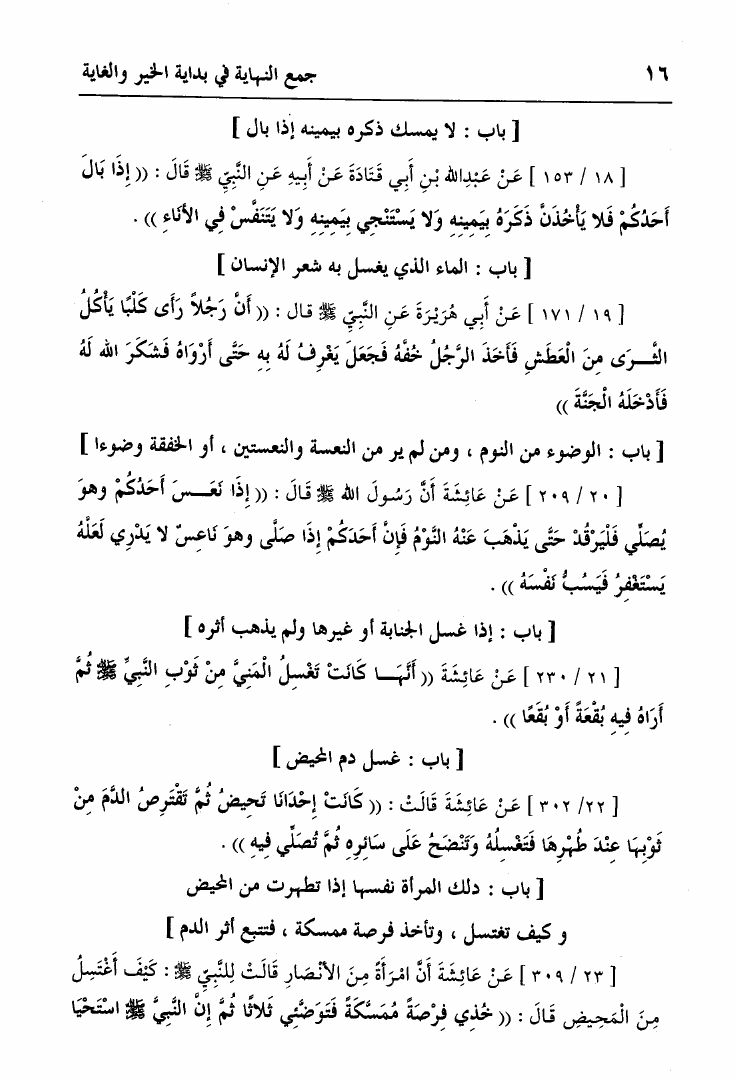 ١٦ جمع النهاية في بداية الخير والغاية
[ باب : لا يمسك ذكره بيمينه إذا بال ]
[ ١٨ / ١٥٣ ] عَنْ عَبْدِالله بْنِ أَبِي قَتَادَةَ عَنْ أَبِيهِ عَنِ النَّبِيِّ ﷺ قَالَ : (( إِذَا بَالَ
أَحَدُكُمْ فَلا يَأْخُذَنَّ ذَكَرَهُ بِيَمِينِهِ وَلا يَسْتَنْجِي بِيَمِينِهِ وَلا يَتَنَفَّسْ فِي الأنَاءِ )) .
[ باب : الماء الذي يغسل به شعر الإنسان ]
[ ١٩ / ١٧١ ] عَنْ أَبِي هُرَيْرَةَ عَنِ النَّبِيِّ ﷺ قال : (( أَنَّ رَجُلاً رَأى كَلْبًا يَأْكُلُ
الثَّــرَى مِنَ الْعَطَشِ فَأَخَذَ الرَّجُلُ خُفَّهُ فَجَعَلَ يَغْرِفُ لَهُ بِهِ حَتَّى أَرْوَاهُ فَشَكَرَ الله لَهُ
فَأَدْخَلَهُ الْجَنَّةَ ))
[ باب : الوضوء من النوم ، ومن لم ير من النعسة والنعستين ، أو الخفقة وضوءا ]
[ ٢٠ / ٢٠٩ ] عَنْ عَائِشَةَ أَنَّ رَسُولَ الله ﷺ قَالَ : (( إِذَا نَعَــسَ أَحَدُكُمْ وهوَ
يُصَلِّي فَلْيَرْقُدْ حَتَّى يَذْهَبَ عَنْهُ النَّوْمُ فَإِنَّ أَحَدَكُمْ إِذَا صَلَّى وهوَ نَاعِسٌ لا يَدْرِي لَعَلَّهُ
يَسْتَغْفِرُ فَيَسُبُّ نَفْسَهُ )) .
[ باب : إذا غسل الجنابة أو غيرها ولم يذهب أثره ]
[ ٢١ / ٢٣٠ ] عَنْ عَائِشَةَ (( أَنَّهَــا كَانَتْ تَغْسِلُ الْمَنِيَّ مِنْ ثَوْبِ النَّبِيِّ ﷺ ثُمَّ
أَرَاهُ فِيهِ بُقْعَةً أَوْ بُقَعًا )) .
[ باب : غسل دم المحيض ]
[ ٢٢/ ٣٠٢ ] عَنْ عَائِشَةَ قَالَتْ : (( كَانَتْ إِحْدَانَا تَحِيضُ ثُمَّ تَقْتَرِصُ الدَّمَ مِنْ
ثَوْبِهَا عِنْدَ طُهْرِهَا فَتَغْسِلُهُ وَتَنْضَحُ عَلَى سَائِرِهِ ثُمَّ تُصَلِّي فِيهِ )) .
[ باب : دلك المرأة نفسها إذا تطهرت من المحيض
و كيف تغتسل ، وتأخذ فرصة ممسكة ، فتتبع أثر الدم ]
[ ٢٣ / ٣٠٩ ] عَنْ عَائِشَةَ أَنَّ امْرَأَةً مِنَ الأَنْصَارِ قَالَتْ لِلنَّبِيِّ ﷺ : كَيْفَ أَغْتَسِلُ
مِنَ الْمَحِيضِ قَالَ : (( خُذِي فِرْصَةً مُمَسَّكَةً فَتَوَضَّئِي ثَلاثًا ثُمَّ إِنَّ النَّبِيَّ ﷺ اسْتَحْيَا